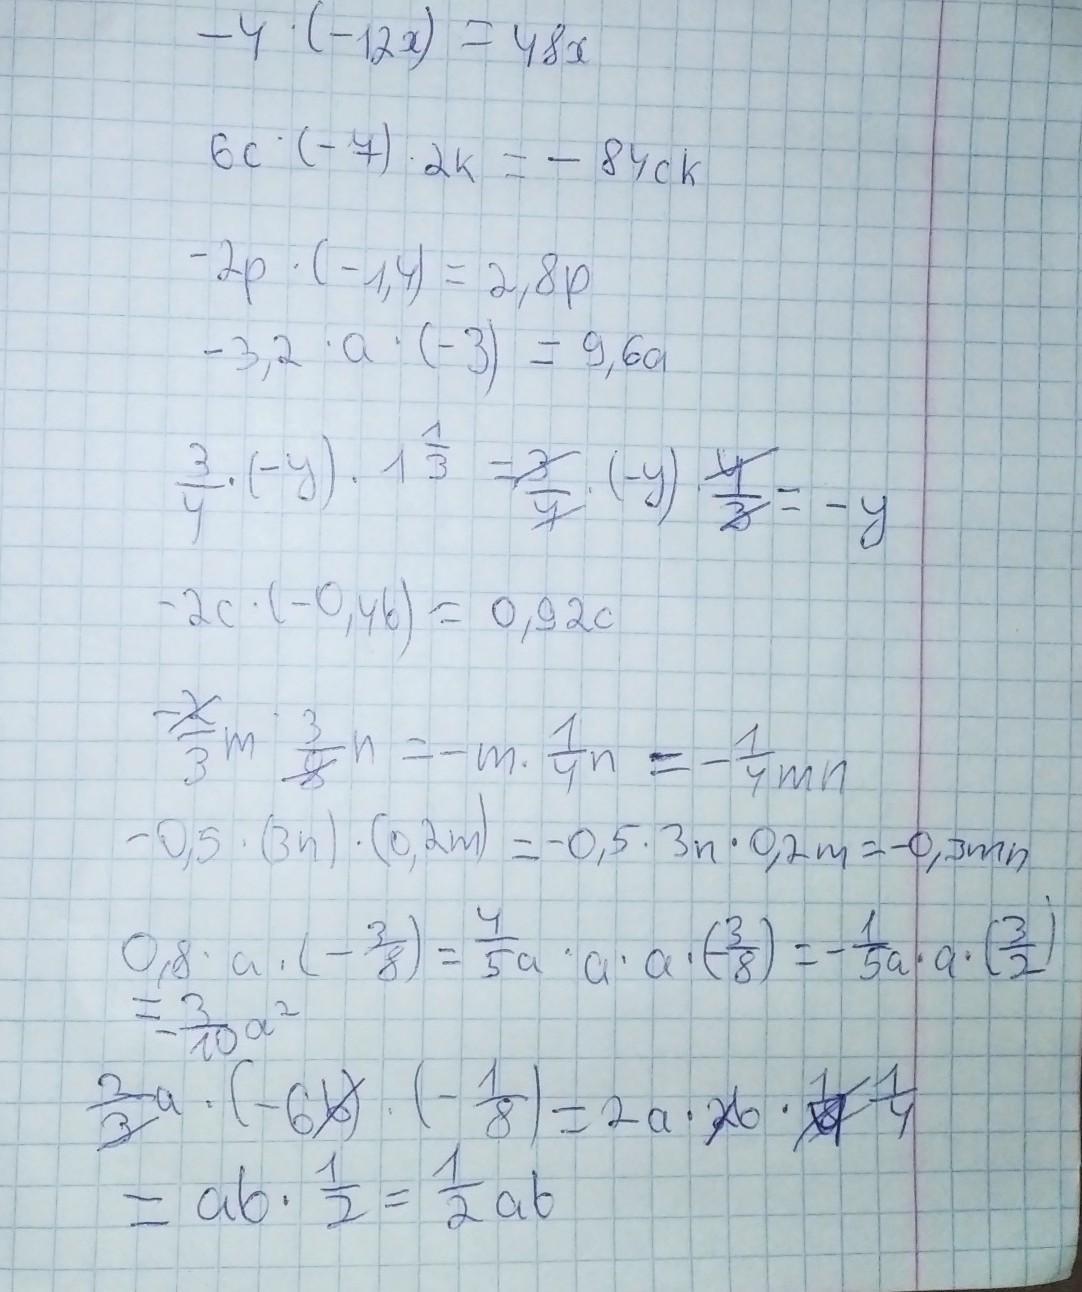 -4 · (-12x) = 48x
6c · (-7) · 2k = - 84ck
-2p · (-1,4) = 2,8p
-3,2 · a · (-3) = 9,6a
3/4 · (-y) · 1 1/3 = 3/4 · (-y) · 4/3 = -y
-2c · (-0,46) = 0,92c
-2/3 m · 3/8 n = -m · 1/4 n = -1/4 mn
-0,5 · (3n) · (0,2m) = -0,5 · 3n · 0,2m = -0,3mn
0,8 · a · (-3/8) = 4/5 a · a · a · (-3/8) = -1/5 a · a · (3/2)
= -3/10 a²
2/3 a · (-6b) · (-1/8) = 2a · 2b · 1/8 1/4
= ab · 1/2 = 1/2 ab